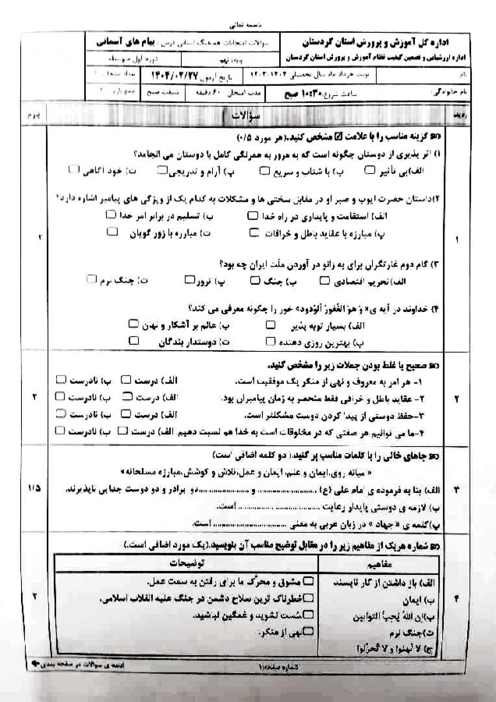 باسمه تعالی
اداره کل آموزش و پرورش استان کردستان
اداره ارزشیابی و تضمین کیفیت نظام آموزش و پرورش استان کردستان
سوالات امتحانات هماهنگ استانی درس: پیام های آسمانی
پایه: نهم
دوره اول متوسطه
نام
نوبت خرداد ماه سال تحصیلی ۱۴۰۴-۱۴۰۳
تاریخ آزمون: ۱۴۰۴/۰۲/۲۷
نام خانوادگی:
ساعت شروع: ۱۰:۳۰ صبح
مدت امتحان: ۶۰ دقیقه
نوبت صبح
ردیف
سؤالات
بارم
گزینه مناسب را با علامت ☑ مشخص کنید.(هر مورد ۰/۵)
۱) اثر پذیری از دوستان چگونه است که به مرور به همرنگی کامل با دوستان می انجامد؟
الف)بی تأثیر □ ب) با شتاب و سریع □ پ) آرام و تدریجی □ ت) خود آگاهی □
۲)داستان حضرت ایوب و صبر او در مقابل سختی ها و مشکلات به کدام یک از ویژگی های پیامبر اشاره دارد؟
الف) استقامت و پایداری در راه خدا □ ب) تسلیم در برابر امر خدا □
پ) مبارزه با عقاید باطل و خرافات □ ت) مبارزه با زور گویان □
۱
۲
۳) گام دوم غارتگران برای به زانو در آوردن ملّت ایران چه بود؟
الف) تحریم اقتصادی □ ب) جنگ □ پ) ترور □ ت) جنگ نرم □
۴) خداوند در آیه ی « وَ هُوَ الغَفُورُ الوَدُود» خود را چگونه معرفی می کند؟
الف) بسیار توبه پذیر □ ب) عالم بر آشکار و نهان □
پ) بهترین روزی دهنده □ ت) دوستدار بندگان □
صحیح یا غلط بودن جملات زیر را مشخص کنید.
۱- هر امر به معروف و نهی از منکر یک موفقیت است. الف) درست □ ب) نادرست □
۲- عقاید باطل و خرافی فقط منحصر به زمان پیامبران بود. الف) درست □ ب) نادرست □
۳-حفظ دوستی از پیدا کردن دوست مشکلتر است. الف) درست □ ب) نادرست □
۴-ما می توانیم هر صفتی که در مخلوقات است به خدا هم نسبت دهیم. الف) درست □ ب) نادرست □
۲
۲
جاهای خالی را با کلمات مناسب پر کنید.( دو کلمه اضافی است)
« میانه روی،ایمان و علم، ایمان و عمل،تلاش و کوشش،مبارزه مسلحانه»
الف) بنا به فرموده ی امام علی (ع) ........................دو برادر و دو دوست جدایی ناپذیرند.
ب) لازمه ی دوستی پایدار رعایت ........................ است.
پ)کلمه ی « جهاد » در زبان عربی به معنی ........................ است.
۳
۱/۵
شماره هریک از مفاهیم زیر را در مقابل توضیح مناسب آن بنویسید.(یک مورد اضافی است.)
مفاهیم
توضیحات
الف) باز داشتن از کار ناپسند
□ مشوق و محرّک ما برای رفتن به سمت عمل.
ب) ایمان
□ خطرناک ترین سلاح دشمن در جنگ علیه انقلاب اسلامی.
پ)إنَّ اللهَ یُحِبُّ التَّوابین
□ سُست نشوید و غمگین نباشید.
ت) جنگ نرم
□ نهی از منکر.
ج) لا تَهِنوا و لا تَحزَنوا
۴
۲
شماره صفحه:۱
ادامه ی سوالات در صفحه بعدی